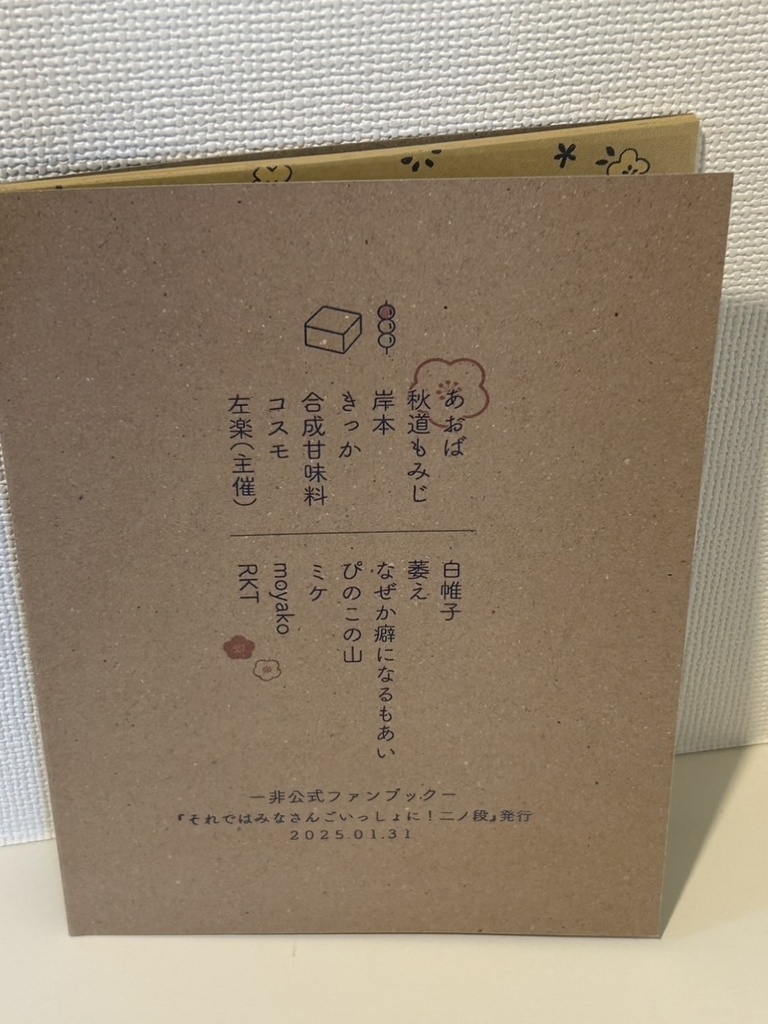 あおば
秋道もみじ
岸本
きっか
合成甘味料
コスモ
左楽(主催)
白帷子
萎え
なぜか癖になるもあい
ぴのこの山
ミケ
moyako
RKT
ー非公式ファンブックー
『それではみなさんごいっしょに!二ノ段』発行
2025.01.31